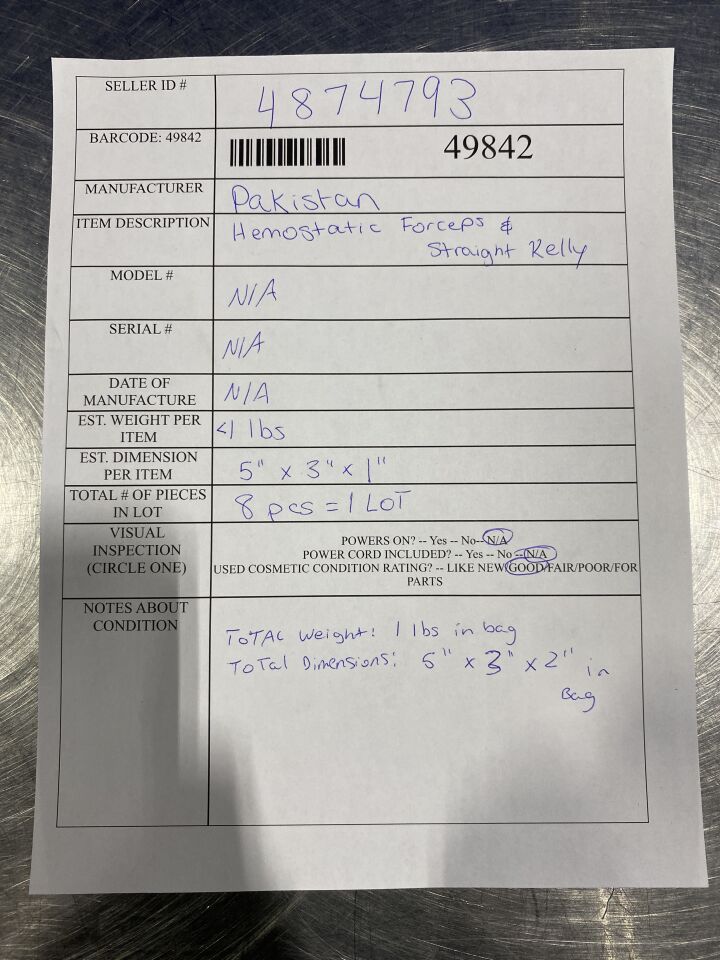 SELLER ID #
4874793
BARCODE: 49842
49842
MANUFACTURER
Pakistan
ITEM DESCRIPTION
Hemostatic Forceps &
Straight Kelly
MODEL #
N/A
SERIAL #
N/A
DATE OF
MANUFACTURE
N/A
EST. WEIGHT PER
ITEM
<1 lbs
EST. DIMENSION
PER ITEM
5" x 3" x 1"
TOTAL # OF PIECES
IN LOT
8 pcs = 1 LOT
VISUAL
INSPECTION
(CIRCLE ONE)
POWERS ON? -- Yes -- No-- N/A
POWER CORD INCLUDED? -- Yes -- No -- N/A
USED COSMETIC CONDITION RATING? -- LIKE NEW/GOOD/FAIR/POOR/FOR
PARTS
NOTES ABOUT
CONDITION
TOTAL Weight: 1 lbs in bag
TOTAL Dimensions: 5" x 3" x 2" in
Bag